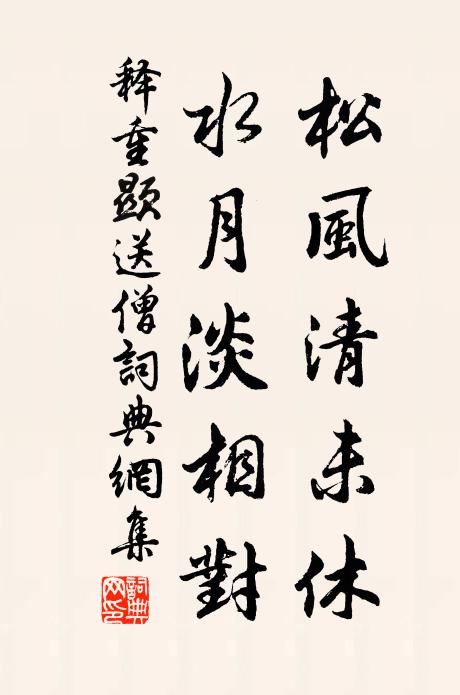 松風清未休
水月淡相對
释重顯送僧詞典網集
詞典網印